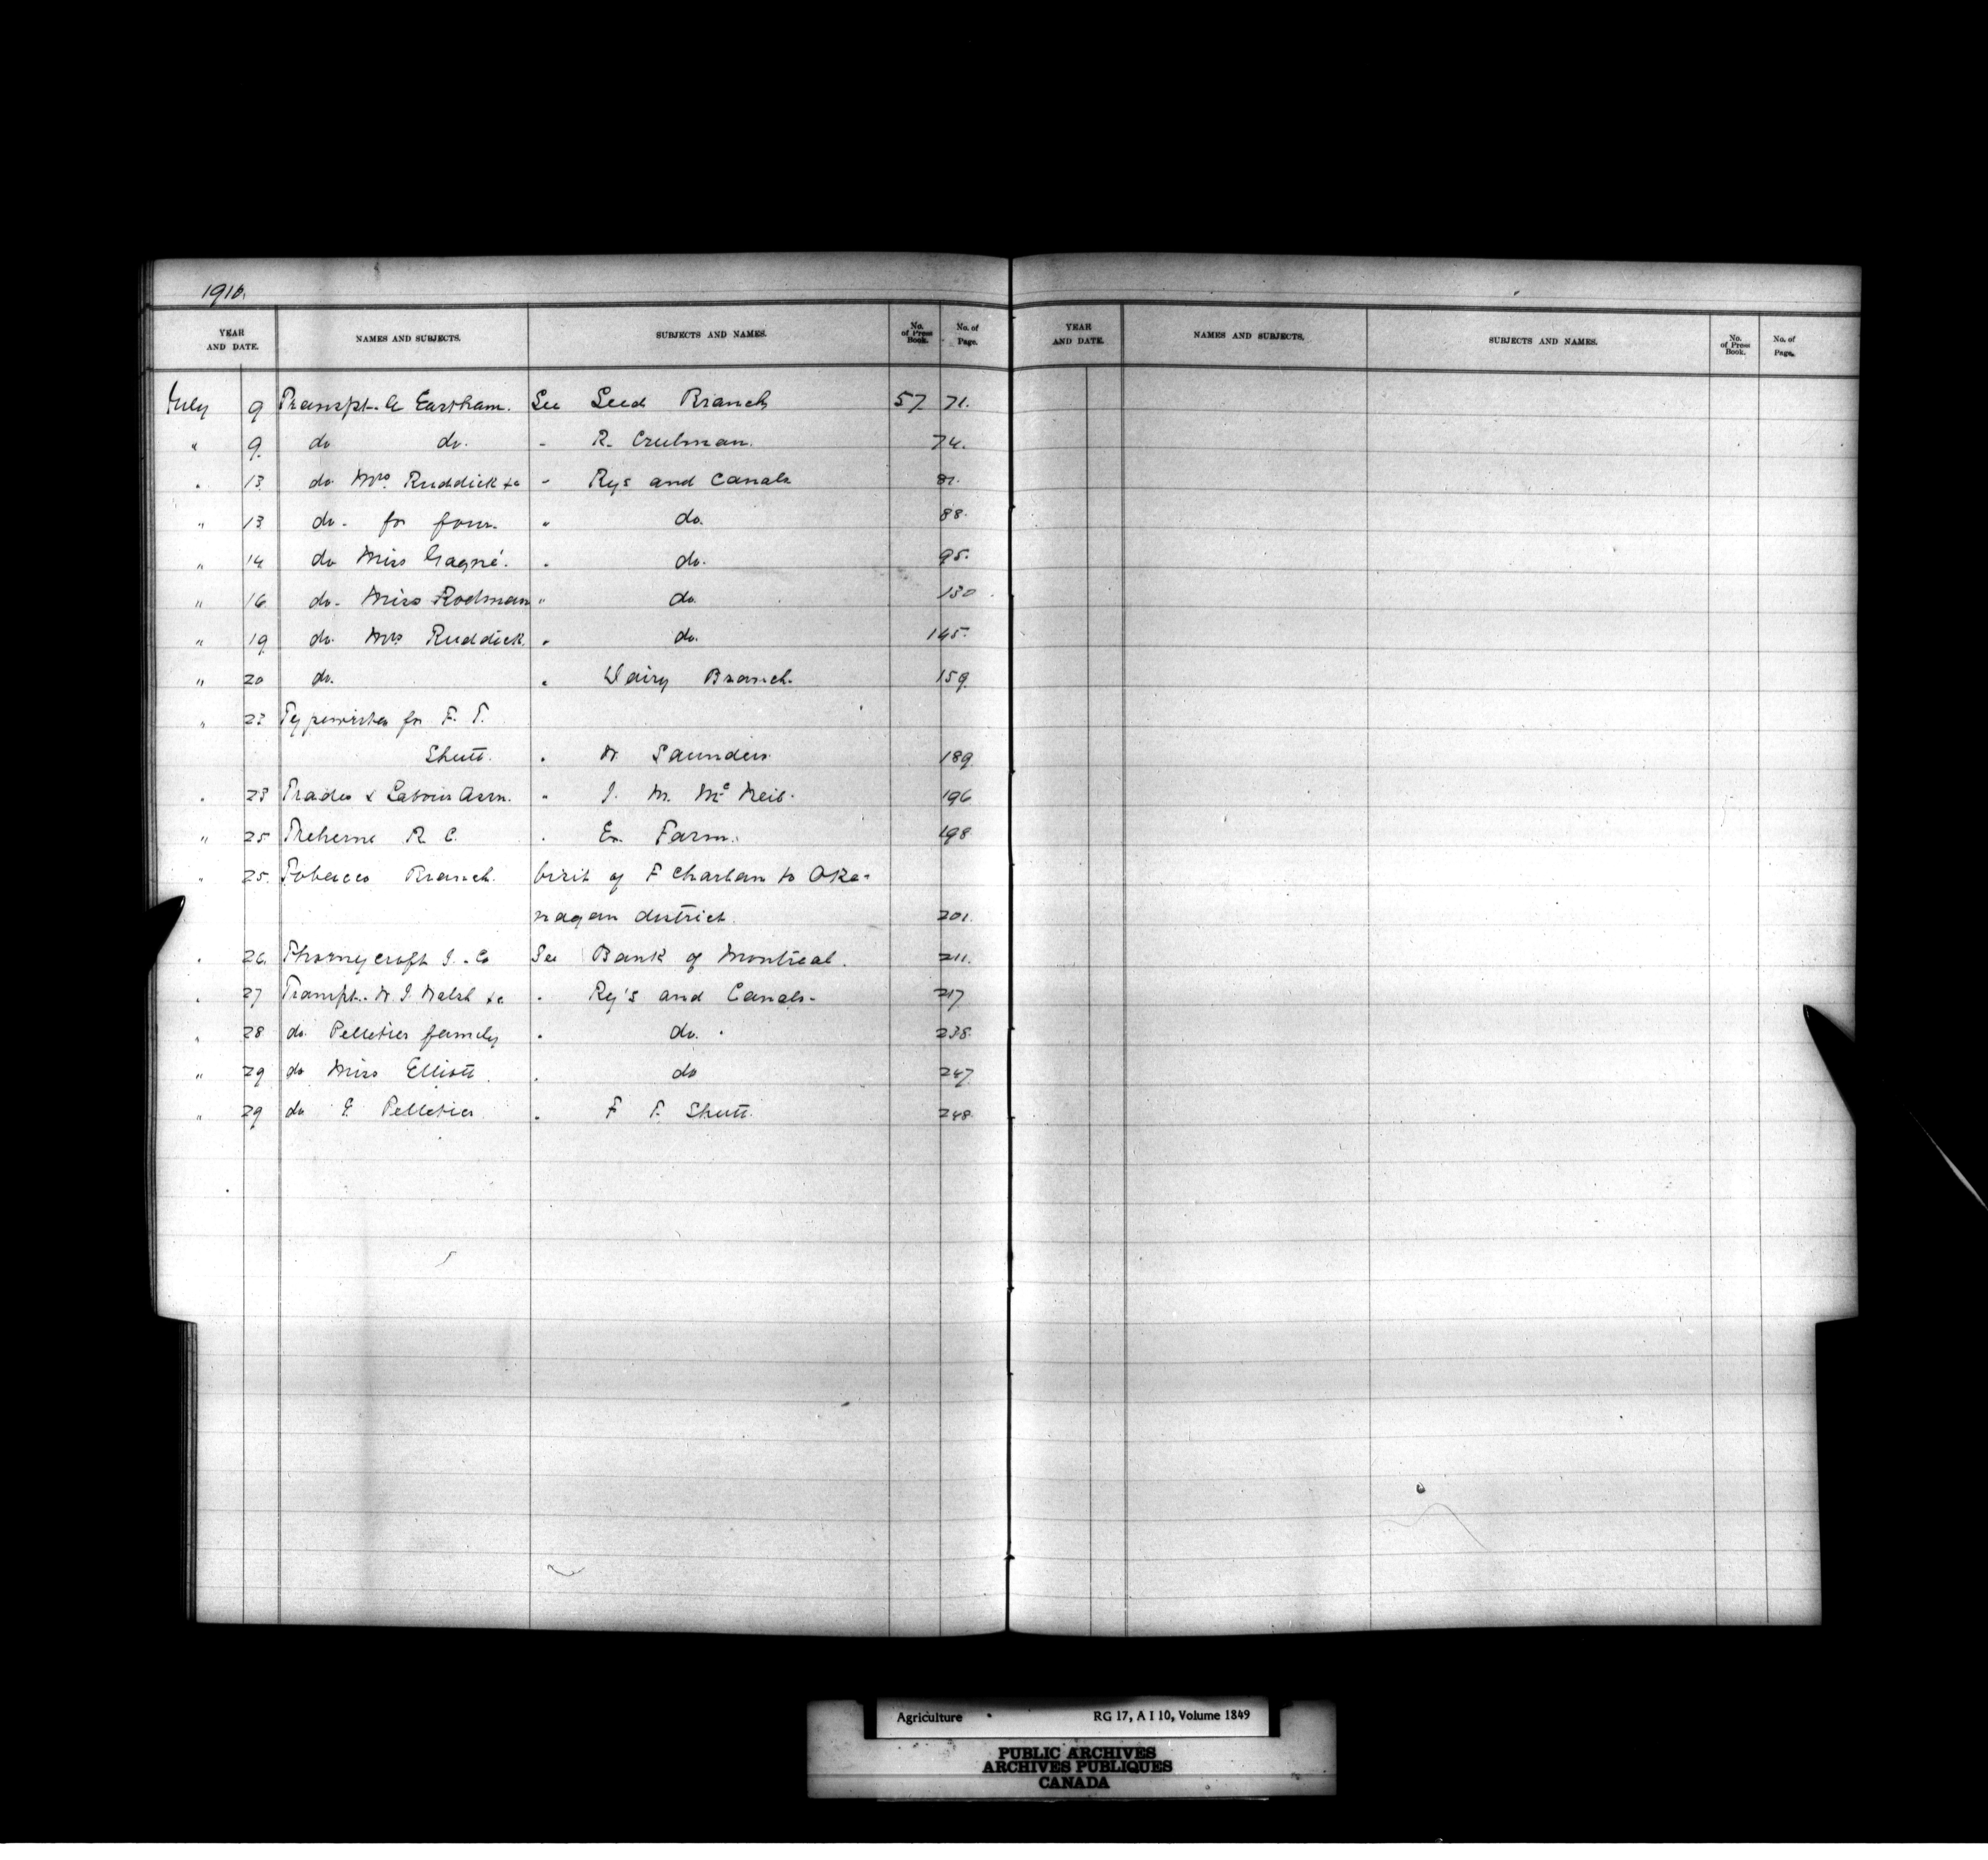 1910.
YEAR AND DATE. NAMES AND SUBJECTS. SUBJECTS AND NAMES. No. of Press Book. No. of Page.
YEAR AND DATE. NAMES AND SUBJECTS. SUBJECTS AND NAMES. No. of Press Book. No. of Page.
July 9 Transpt. A Eastham. See Seed Branch 57 71.
" 9. do do. " R. Creelman. 74.
" 13 do Mrs. Ruddick &c " Rys and Canals 87.
" 13 do. for four. " do. 88.
" 14 do Miss Gagné. " do. 95.
" 16 do. Miss Rodman " do. 130
" 19 do. Mrs Ruddick. " do. 145.
" 20 do. " Dairy Branch. 159.
" 23 Typewriter for F. T.
Shutt. " W Saunders. 189.
" 23 Trades & Labour Assn. " J. M. McNeil. 196
" 25 Treherne R C. " Ex. Farm. 198
" 25. Tobacco Branch. Visit of F Charlan to Oka-
nagan district. 201.
" 26. Thornycroft J. & Co See Bank of Montreal. 211.
" 27 Transpt. W. J. Walsh &c " Ry's and Canals. 217
" 28 do. Pelletier family " do. 238.
" 29 do Miss Elliott " do 247
" 29 do E Pelletier " F T. Shutt. 248.
Agriculture RG 17, A I 10, Volume 1849
PUBLIC ARCHIVES
ARCHIVES PUBLIQUES
CANADA